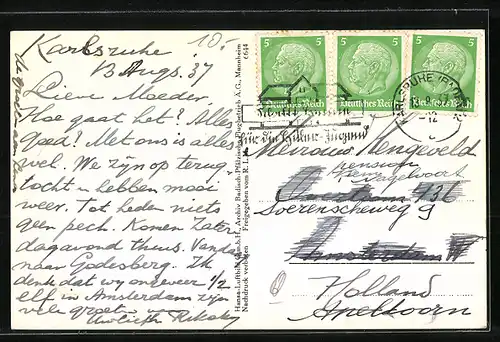 Karlsruhe
13 Aug. 37
10.-
Lieve Moeder.
Hoe gaat het? Alles
goed? Met ons is alles
wel. We zijn op terug
tocht en hebben mooi
weer. Tot heden niets
geen pech. Komen Zater
dagavond thuis. Van
naar Godesberg. Ik
denk dat wij ongeveer 1/2
elf in Amsterdam zijn
vele groeten
Hansa-Luftbild G.m.b.H., Archiv Badisch-Pfälzische Flugbetrieb A.G., Mannheim
Nachdruck verboten Freigegeben vom R.L.M. 6644
5 5 5
Deutsches Reich Deutsches Reich Deutsches Reich
KARLSRUHE (BADEN)
12
für die Hitler-Jugend
Mevrouw Mengeveld
pension
Soerenscheweg 9
Amsterdam
Holland
Apeldoorn